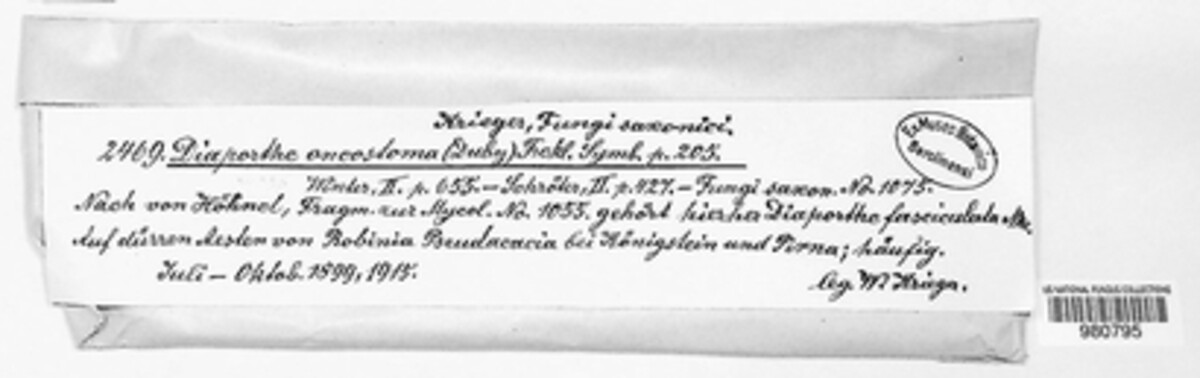 Krieger, Fungi saxonici.
2469. Diaporthe oncostoma (Duby) Fckl. Symb. p. 205.
Winter, II. p. 655. – Schröter, II. p. 427. – Fungi saxon. No. 1075.
Nach von Höhnel, Fragm. zur Mycol. No. 1055. gehört hierher Diaporthe fasciculata Nke.
Auf dürren Aesten von Robinia Pseudacacia bei Königstein und Pirna; häufig.
Juli – Oktob. 1899, 1915.
leg. W. Krieger.
Ex Museo Botanico
Berolinensi
US NATIONAL FUNGUS COLLECTIONS
980795